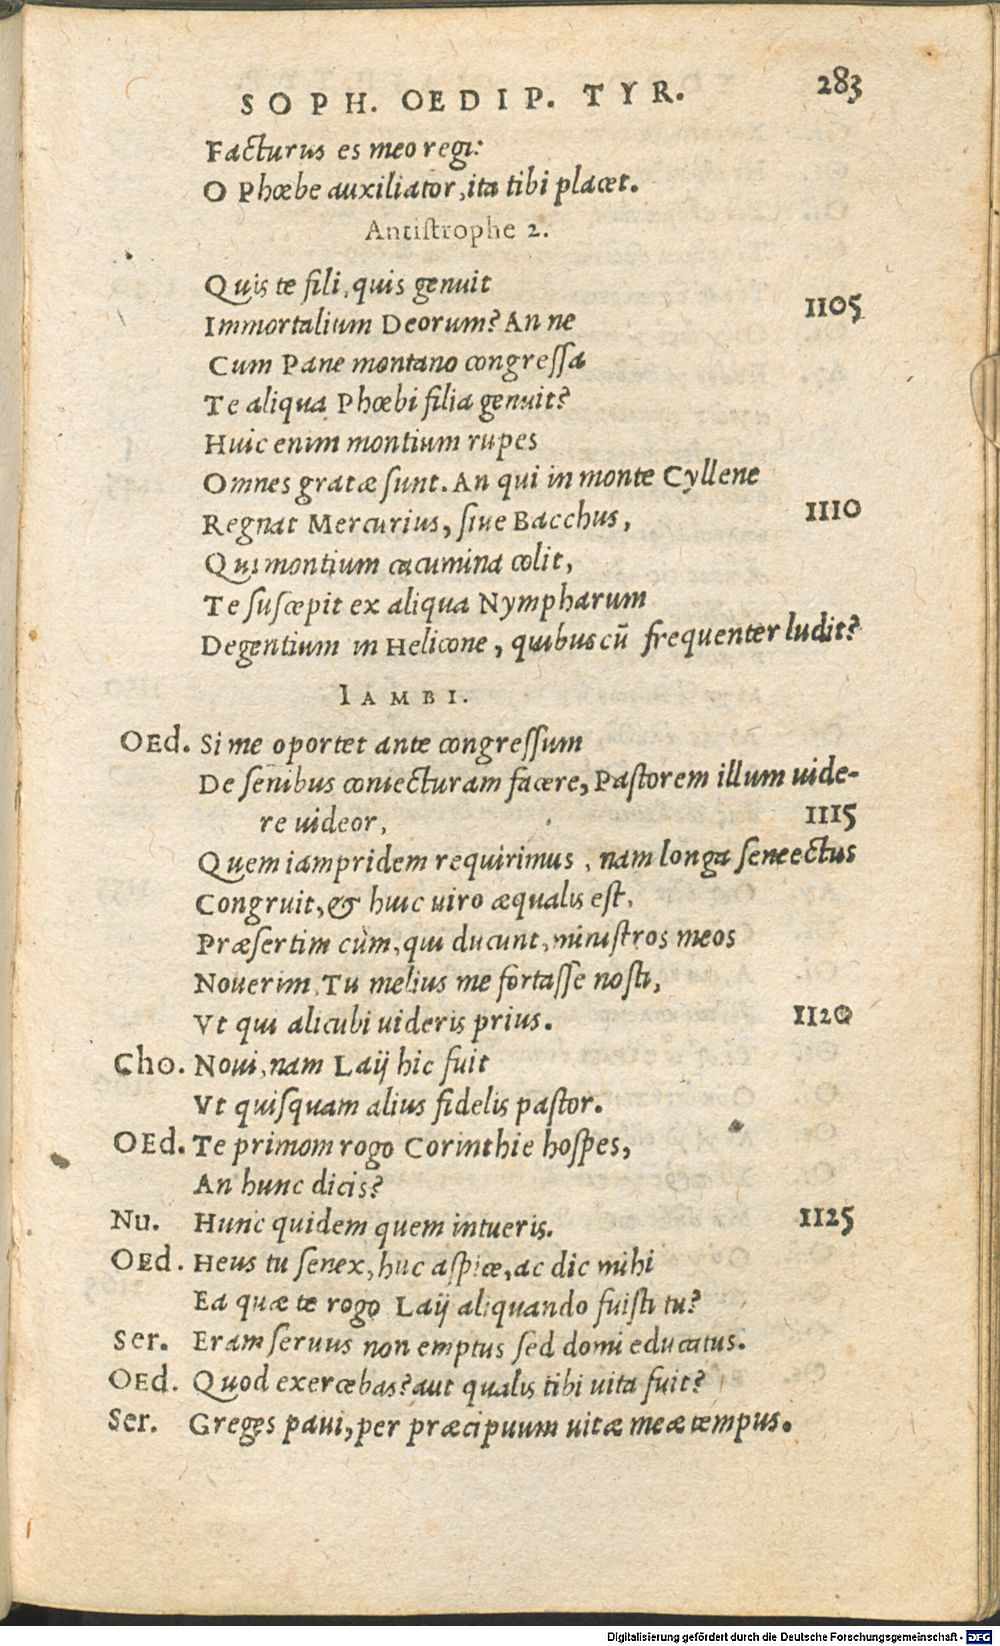 SOPH. OEDIP. TYR. 283
Facturus es meo regi:
O Phœbe auxiliator, ita tibi placet.
Antiſtrophe 2.
Quis te fili, quis genuit
Immortalium Deorum? An ne 1105
Cum Pane montano congreſſa
Te aliqua Phœbi filia genuit?
Huic enim montium rupes
Omnes gratæ ſunt. An qui in monte Cyllene
Regnat Mercurius, ſiue Bacchus, 1110
Qui montium cacumina colit,
Te ſuſcepit ex aliqua Nympharum
Degentium in Helicone, quibus cũ frequenter ludit?
IAMBI.
OEd. Si me oportet ante congreſſum
De ſenibus coniecturam facere, Paſtorem illum uide-
re uideor, 1115
Quem iampridem requirimus, nam longa ſeneectus
Congruit, & huic uiro æqualis eſt,
Præſertim cùm, qui ducunt, miniſtros meos
Nouerim. Tu melius me fortaſſe noſti,
Vt qui alicubi uideris prius. 1120
Cho. Noui, nam Laij hic fuit
Vt quiſquam alius fidelis paſtor.
OEd. Te primom rogo Corinthie hoſpes,
An hunc dicis?
Nu. Hunc quidem quem intueris. 1125
OEd. Heus tu ſenex, huc aſpice, ac dic mihi
Ea quæ te rogo Laij aliquando fuiſti tu?
Ser. Eram ſeruus non emptus ſed domi educatus.
OEd. Quod exercebas? aut qualis tibi uita fuit?
Ser. Greges paui, per præcipuum uitæ meæ tempus.
Digitalisierung gefördert durch die Deutsche Forschungsgemeinschaft - DFG